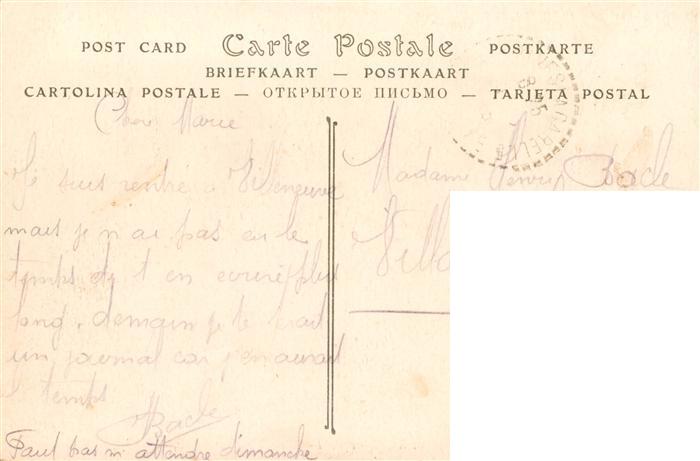 POST CARD Carte Postale POSTKARTE
BRIEFKAART — POSTKAART
CARTOLINA POSTALE — ОТКРЫТОЕ ПИСЬМО — TARJETA POSTAL
Cher Marie
Je suis rentré a Villeneuve
mais je n ai pas eu le
temps de t en écrire plus
long, demain je te
un journal car j'en aurait
le temps
HBacle
Faut pas m attendre dimanche
Madame Henry Bacle